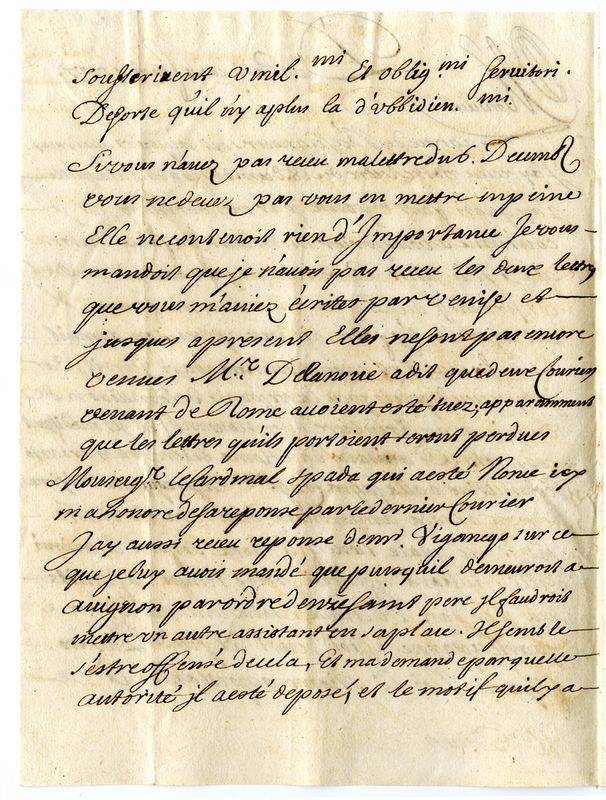 souscrivent vmil. mi Et oblig. mi servitori.
Desorte qu'il n'y aplus la d'vbbidien. mi.
Si vous n'avez pas receu ma lettre du 6. Decemb
vous ne devez pas vous en mettre inpeine
Elle ne contenoit rien d'Importance Je vous
mandoit que je n'avois pas receu les deux lettres
que vous m'aviez écrites par venise et
jusques apresent Elles ne sont pas encore
venues Mr. Delanoüe adit que deux Couriers
venant de Rome avoient esté tuez, apparamment
que les lettres qu'ils portoient seront perdues
Monseigr. le Cardinal spada qui a esté Nonce icy
m a honoré de sa reponse par le dernier Courier
J ay aussi receu reponse de mr. sur ce
que je luy avois mandé que puisqu'il demeuroit a
avignon par ordre de nre saint pere jl faudroit
mettre vn autre assistant en sa place. Il semble
s'estre offensé de cela, Et ma demandé par quelle
autorité jl a esté deposé, et le motif qu'il y a